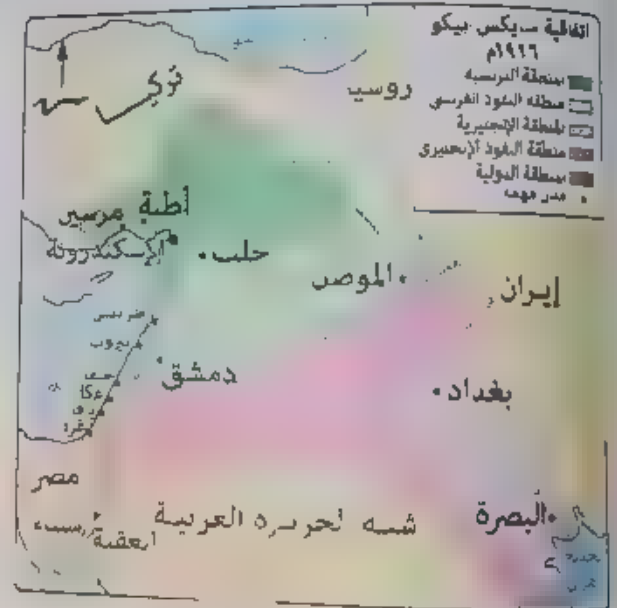 اتفاقية سايكس بيكو
١٩١٦م
منطقة الفرنسية
منطقة النفوذ الفرنسي
المنطقة الإنجليزية
منطقة النفوذ الإنجليزي
منطقة الدولية
مدن مهمة
روسيا
أطنة
مرسين
الإسكندرونة
حلب
الموصل
إيران
طرابلس
بيروت
دمشق
عكا
بغداد
مصر
العقبة
شبه الجزيرة العربية
البصرة